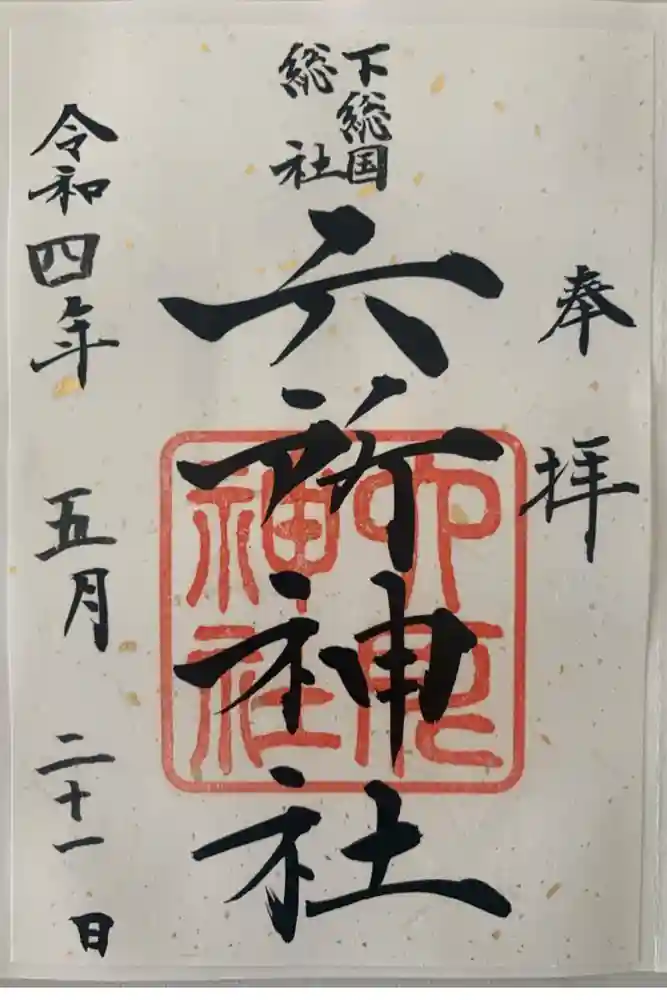 奉拝
下総国
総社
六所神社
令和四年五月二十一日